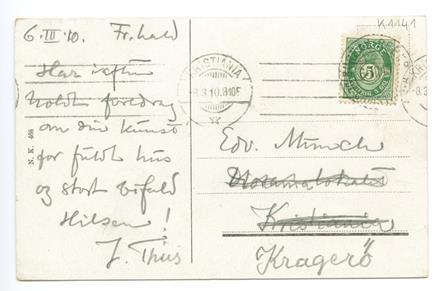 6 III 10. Fr. hald
Har iaften
holdt foredrag
om din kunst
for fuldt hus
og stort bifald
Hilsen!
J. Thiis
N. K. 468
KRISTIANIA
8.3.10.8
NORGE
5
K1141
8.3
Edv. Munch
Kristiania
Kragerø